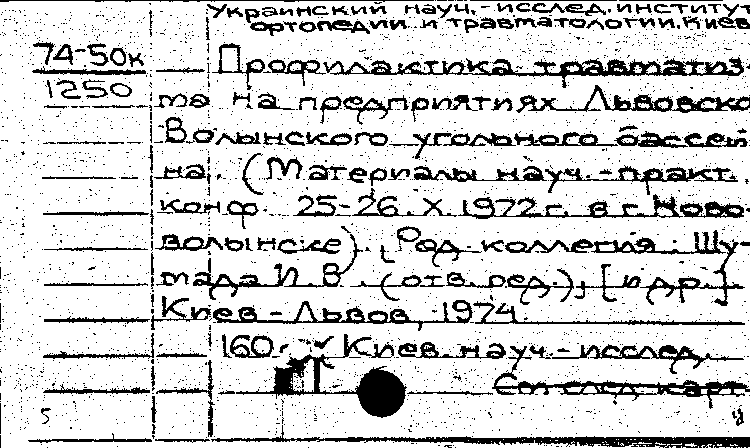 Украинский науч.-исслед. институт
ортопедии и травматологии. Киев
74-50к Профилактика травматиз-
1250 ма на предприятиях Львовско-
Волынского угольного бассей
на. (Материалы науч.-практ.
конф. 25-26.X.1972г. в г. Ново-
волынске). [Ред. коллегия: Шу-
мада И.В. (отв. ред.), [и др.].
Киев-Львов, 1974.
160 Киев. науч.-исслед.
См след карт
5